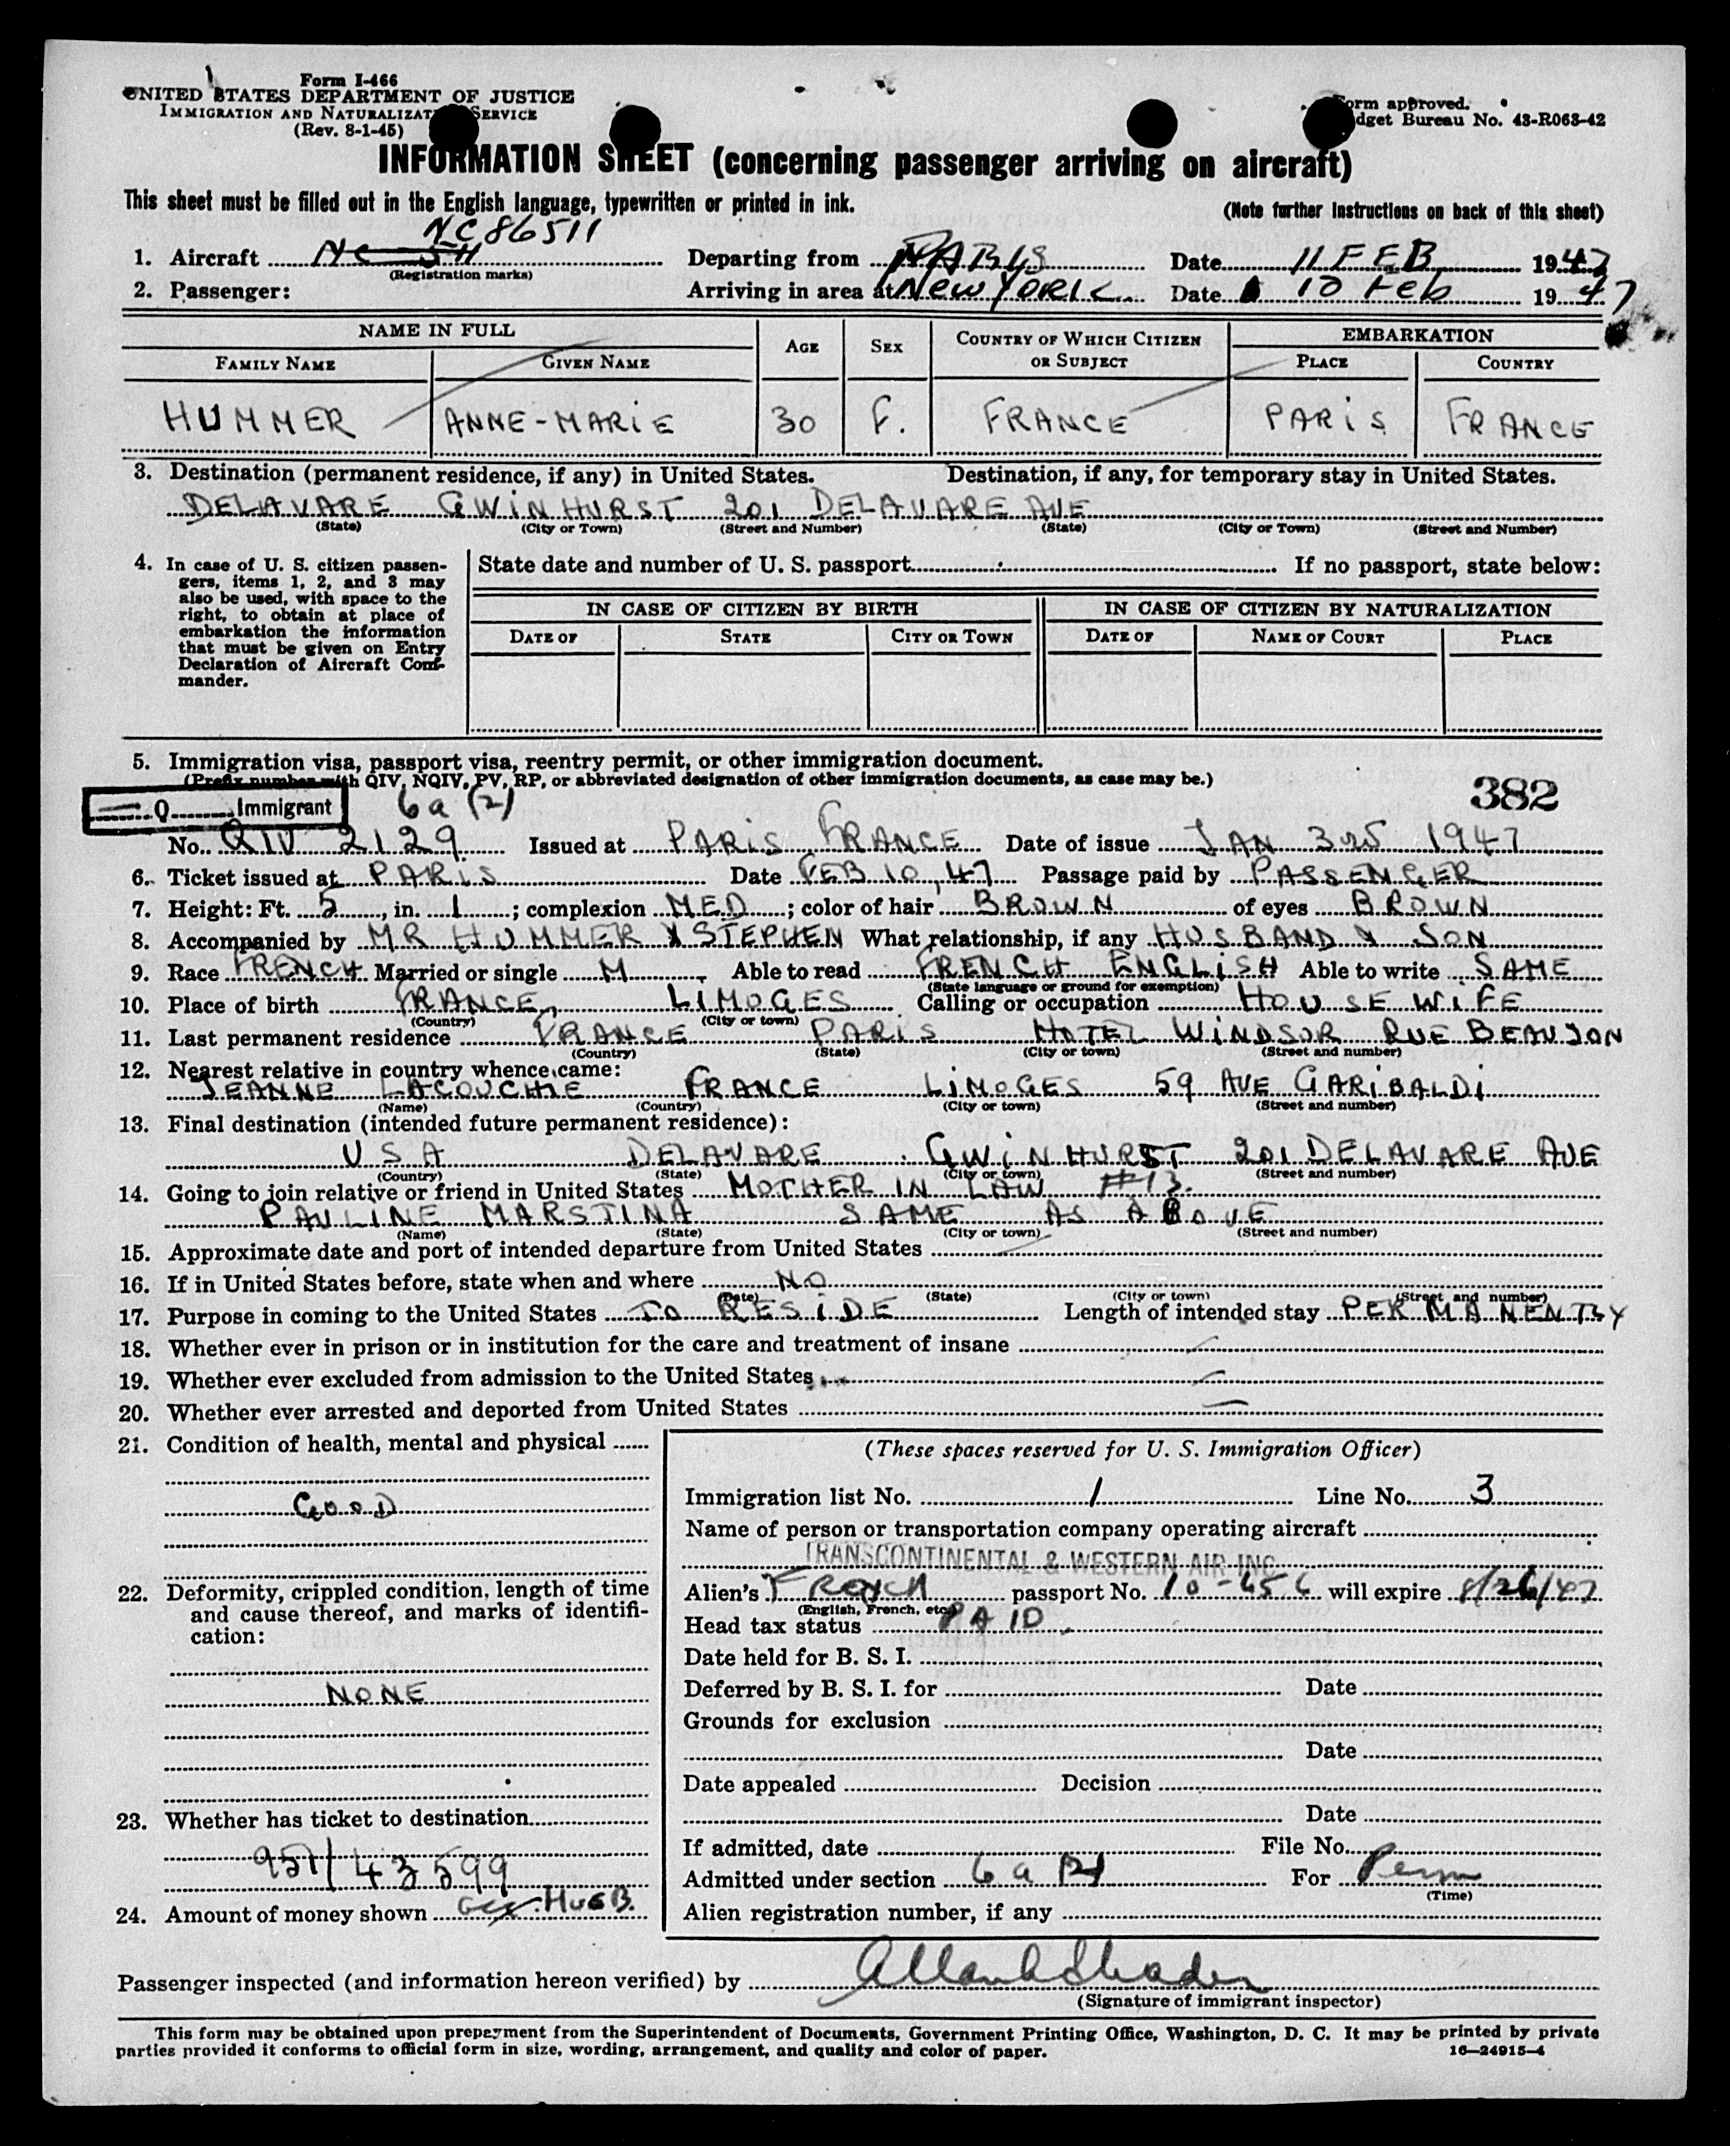 Form I-466
UNITED STATES DEPARTMENT OF JUSTICE
IMMIGRATION AND NATURALIZATION SERVICE
(Rev. 8-1-45)
Form approved.
Budget Bureau No. 43-R063-42
INFORMATION SHEET (concerning passenger arriving on aircraft)
This sheet must be filled out in the English language, typewritten or printed in ink.
(Note further instructions on back of this sheet)
NC86511
1. Aircraft (Registration marks) Departing from PARIS Date 11 FEB 1947
2. Passenger: Arriving in area at New YORK Date 10 Feb 1947
NAME IN FULL AGE SEX COUNTRY OF WHICH CITIZEN OR SUBJECT EMBARKATION
FAMILY NAME GIVEN NAME PLACE COUNTRY
HUMMER ANNE-MARIE 30 F. FRANCE PARIS FRANCE
3. Destination (permanent residence, if any) in United States. Destination, if any, for temporary stay in United States.
DELAVARE GWINHURST 201 DELAVARE AVE
(State) (City or Town) (Street and Number) (State) (City or Town) (Street and Number)
4. In case of U. S. citizen passengers, items 1, 2, and 3 may also be used, with space to the right, to obtain at place of embarkation the information that must be given on Entry Declaration of Aircraft Commander.
State date and number of U. S. passport If no passport, state below:
IN CASE OF CITIZEN BY BIRTH IN CASE OF CITIZEN BY NATURALIZATION
DATE OF STATE CITY OR TOWN DATE OF NAME OF COURT PLACE
5. Immigration visa, passport visa, reentry permit, or other immigration document.
(Prefix number with QIV, NQIV, PV, RP, or abbreviated designation of other immigration documents, as case may be.)
382
Q Immigrant 6a (2)
No. QIV 2129 Issued at PARIS FRANCE Date of issue JAN 1947
6. Ticket issued at PARIS Date FEB 10, 47 Passage paid by PASSENGER
7. Height: Ft. 5, in. 1; complexion MED; color of hair BROWN of eyes BROWN
8. Accompanied by MR HUMMER & STEPHEN What relationship, if any HUSBAND & SON
9. Race FRENCH Married or single M Able to read FRENCH ENGLISH Able to write SAME
(State language or ground for exemption)
10. Place of birth FRANCE, LIMOGES Calling or occupation HOUSEWIFE
(Country) (City or town)
11. Last permanent residence FRANCE PARIS HOTEL WINDSOR RUE BEAUJON
(Country) (State) (City or town) (Street and number)
12. Nearest relative in country whence came:
JEANNE LACOUCHIE FRANCE LIMOGES 59 AVE GARIBALDI
(Name) (Country) (City or town) (Street and number)
13. Final destination (intended future permanent residence):
USA DELAVARE GWINHURST 201 DELAVARE AVE
(Country) (State) (City or town) (Street and number)
14. Going to join relative or friend in United States MOTHER IN LAW #13.
PAULINE MARSTINA SAME AS ABOVE
(Name) (State) (City or town) (Street and number)
15. Approximate date and port of intended departure from United States
16. If in United States before, state when and where NO
(Date) (State) (City or town) (Street and number)
17. Purpose in coming to the United States TO RESIDE Length of intended stay PERMANENTLY
18. Whether ever in prison or in institution for the care and treatment of insane
19. Whether ever excluded from admission to the United States
20. Whether ever arrested and deported from United States
21. Condition of health, mental and physical
GOOD
22. Deformity, crippled condition, length of time and cause thereof, and marks of identification:
NONE
23. Whether has ticket to destination
951/43599
24. Amount of money shown HUSB.
(These spaces reserved for U. S. Immigration Officer)
Immigration list No. 1 Line No. 3
Name of person or transportation company operating aircraft
TRANSCONTINENTAL & WESTERN AIR INC
Alien's French passport No. will expire 8/26/47
(English, French, etc.)
Head tax status PAID
Date held for B. S. I.
Deferred by B. S. I. for Date
Grounds for exclusion
Date
Date appealed Decision
Date
If admitted, date File No.
Admitted under section 6a (2) For Perm
(Time)
Alien registration number, if any
Passenger inspected (and information hereon verified) by
(Signature of immigrant inspector)
This form may be obtained upon prepayment from the Superintendent of Documents, Government Printing Office, Washington, D. C. It may be printed by private
parties provided it conforms to official form in size, wording, arrangement, and quality and color of paper. 16—24915-4